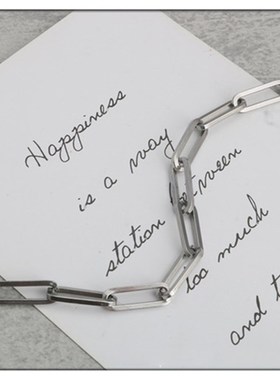 Happiness
is a way
station
too much
and